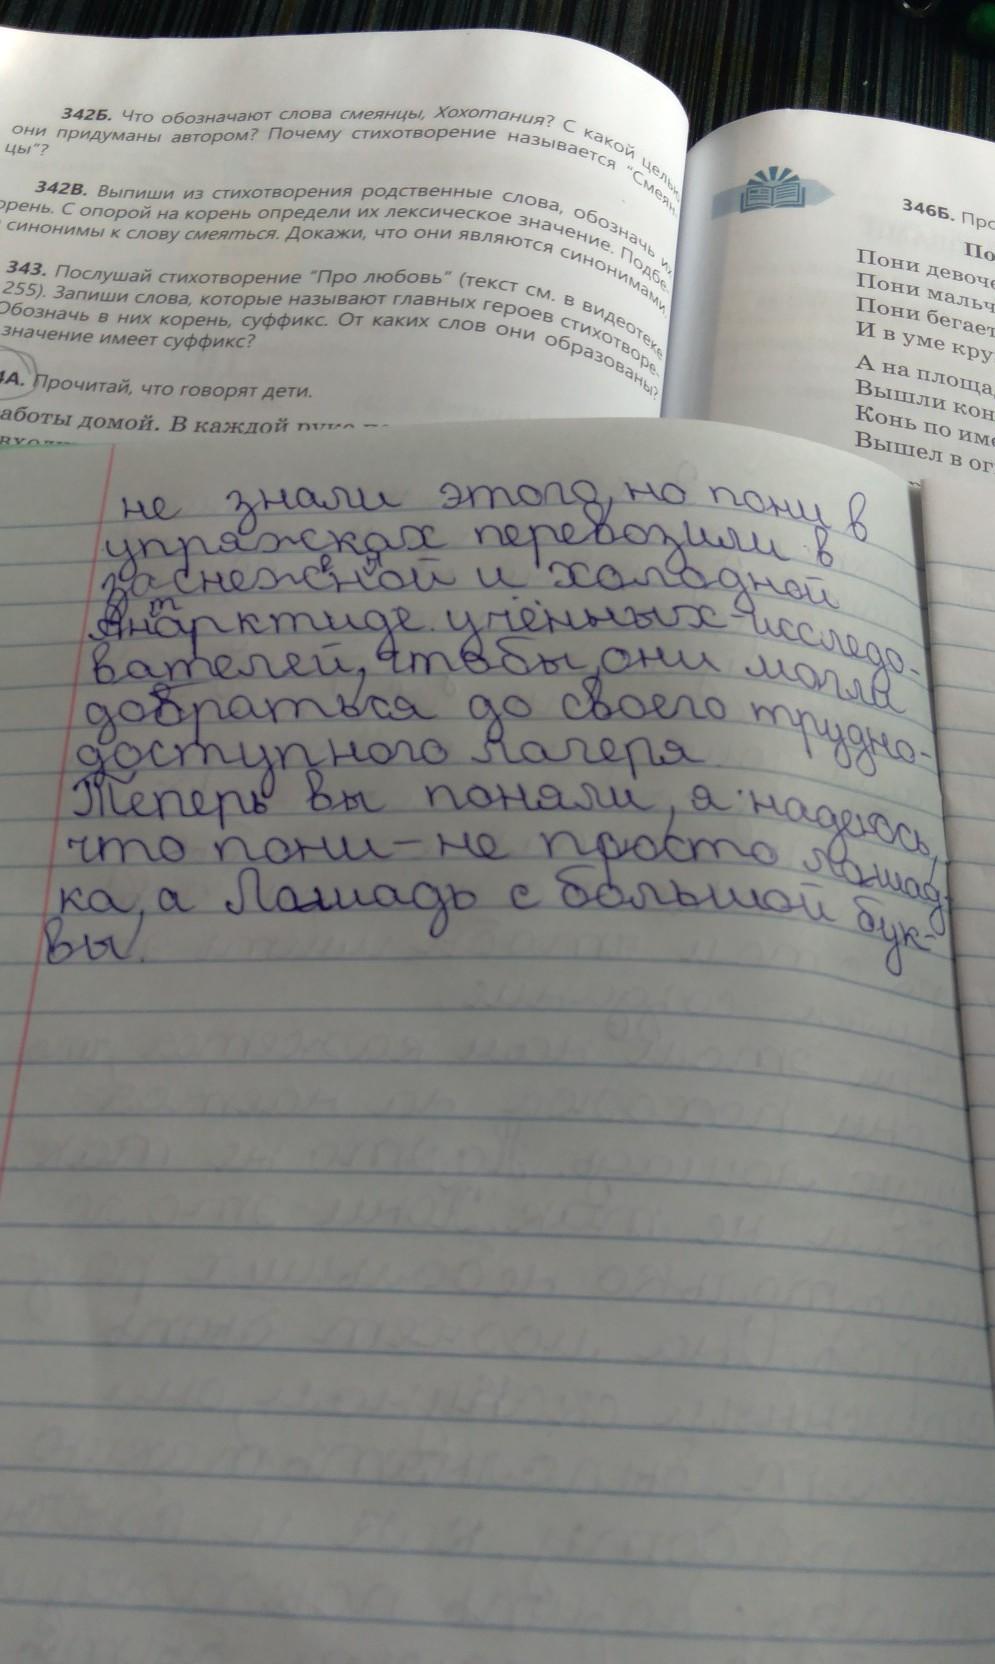 342Б. Что обозначают слова смеянцы, Хохотания? С какой целью
они придуманы автором? Почему стихотворение называется "Смеян-
цы"?
342В. Выпиши из стихотворения родственные слова, обозначь их
орень. С опорой на корень определи их лексическое значение. Подбе-
синонимы к слову смеяться. Докажи, что они являются синонимами.
343. Послушай стихотворение "Про любовь" (текст см. в видеотеке
255). Запиши слова, которые называют главных героев стихотворе-
Обозначь в них корень, суффикс. От каких слов они образованы?
значение имеет суффикс?
4А. Прочитай, что говорят дети.
аботы домой. В каждой руке по
346Б. Про
По
Пони девоче
Пони мальч
Пони бегает
И в уме кру
А на площа
Вышли кон
Конь по име
Вышел в ог
не знали этого, но пони в
упряжсках перевозили в
заснежвной и холодной
Антарктиде учённых-исследо-
вателей, чтобы они могли
добраться до своего трудно-
доступного лагеря
Теперь вы поняли, я надеюсь,
что пони – не просто лошад-
ка, а Лошадь с большой бук-
вы.